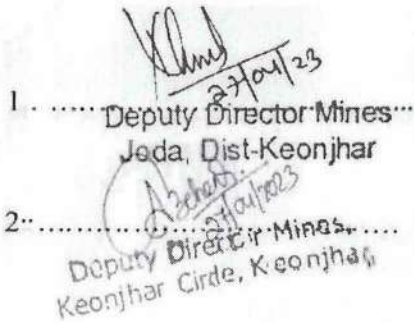 27/04/23
1. ..................
Deputy Director Mines
Joda, Dist-Keonjhar
27/04/2023
2. ..................
Deputy Director Mines,
Keonjhar Circle, Keonjhar